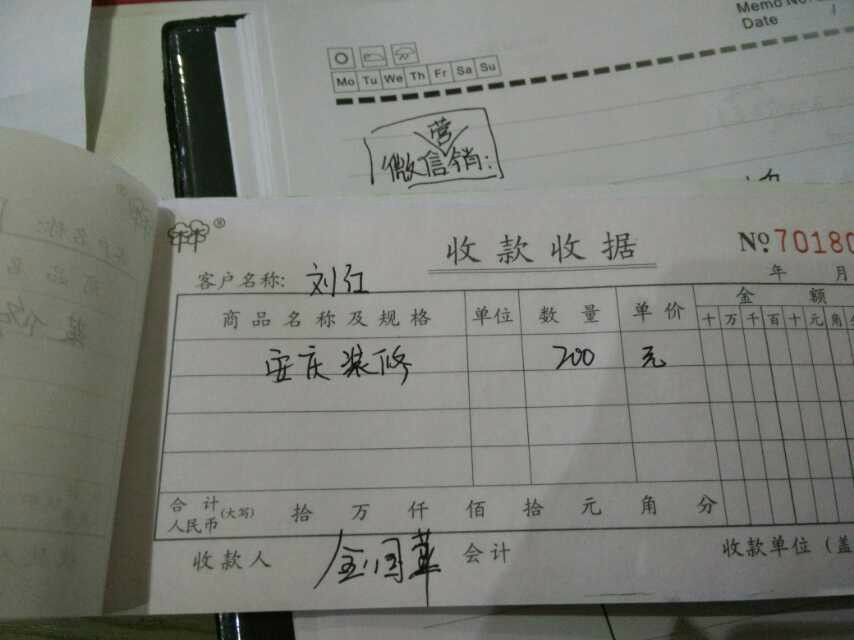 Memo No.
Date
Mo Tu We Th Fr Sa Su
营
微信销:
收款收据
№ 70180
客户名称: 刘红
年 月
商品名称及规格 单位 数量 单价 金额
十 万 千 百 十 元 角
安庆装修 200 元
合计人民币(大写) 拾 万 仟 佰 拾 元 角 分
收款人 会计 收款单位(盖